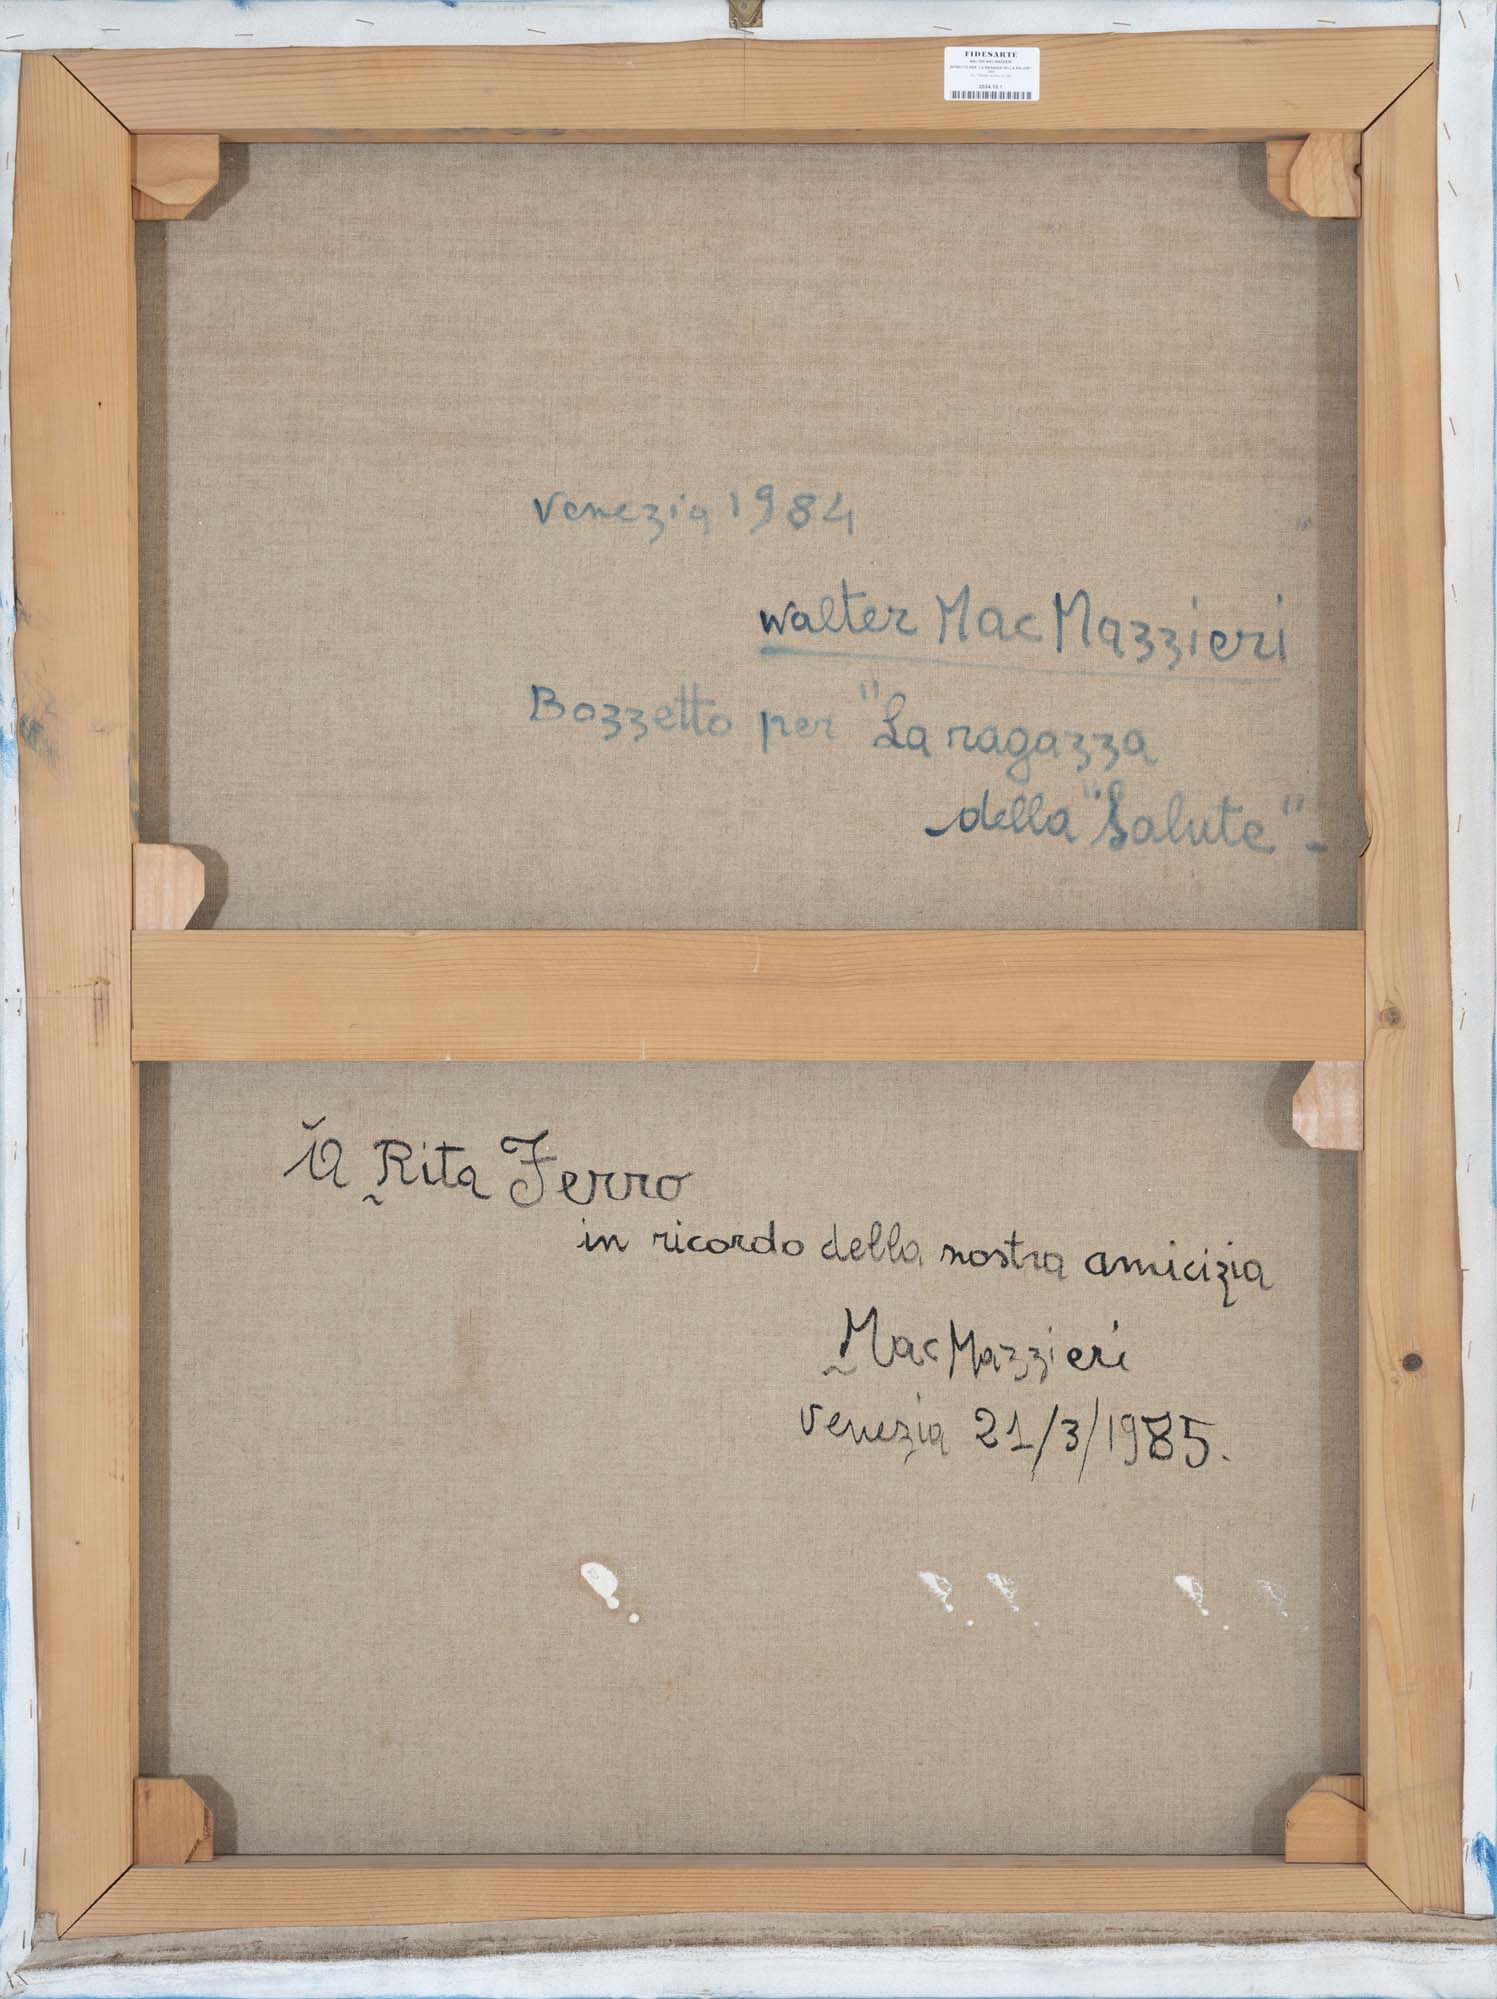 FIDESARTE
WALTER MAC MAZZIERI
venezia 1984
walter Mac Mazzieri
Bozzetto per "La ragazza
della "Salute"" -
A Rita Ferro
in ricordo della nostra amicizia
Mac Mazzieri
venezia 21/3/1985.